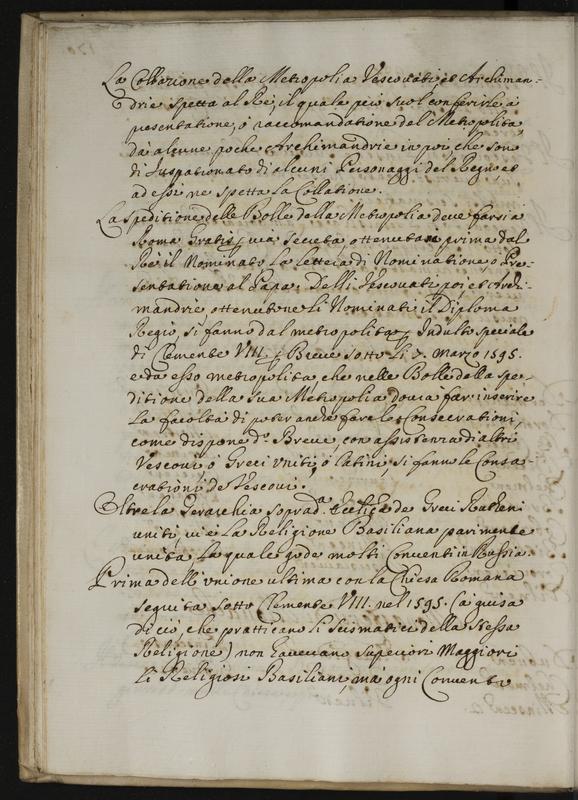 La Collazione della Metropolia Vescovati, et Archiman-
drie spetta al Rè, il quale però suol conferirle à
presentatione, ò raccomandatione del Metropolita,
da alcune poche Archimandrie in poi, che sono
di Juspatronato di alcuni Personaggi del Regno et
ad essi ne spetta la Collatione.
La speditione delle Bolle della Metropolia deve farsi a
Roma Gratis, via secreta ottenuta prima dal
Rè il Nominato la lettera di Nominatione, ò Pre-
sentatione al Papa. Delli Vescovati poi, et Archi-
mandrie ottenutone li Nominati il Diploma
Regio, si fanno dal metropolita Indulto speciale
di Clemente VIII. Breve sotto li 7. Marzo 1595.
e da esso metropolita, che nelle Bolle della spe-
ditione della sua Metropolia dovrà far inserire
la facoltà di poter anche fare le Consecrationi,
come dispone do. Breve, con assistenza di altri
Vescovi ò Greci Uniti, ò latini, si fanno le Consa-
crationi de Vescovi.
Oltre la Gerarchia soprada. de Greci Rutheni
uniti, vi è la Religione Basiliana parimente
unita la quale gode molti Conventi in Russia.
Prima dell'unione ultima con la Chiesa Romana
seguita sotto Clemente VIII. nel 1595. (à guisa
di ciò, che pratticano li scismatici della stessa
Religione) non havevano superiori Maggiori
li Religiosi Basiliani, mà ogni Convento